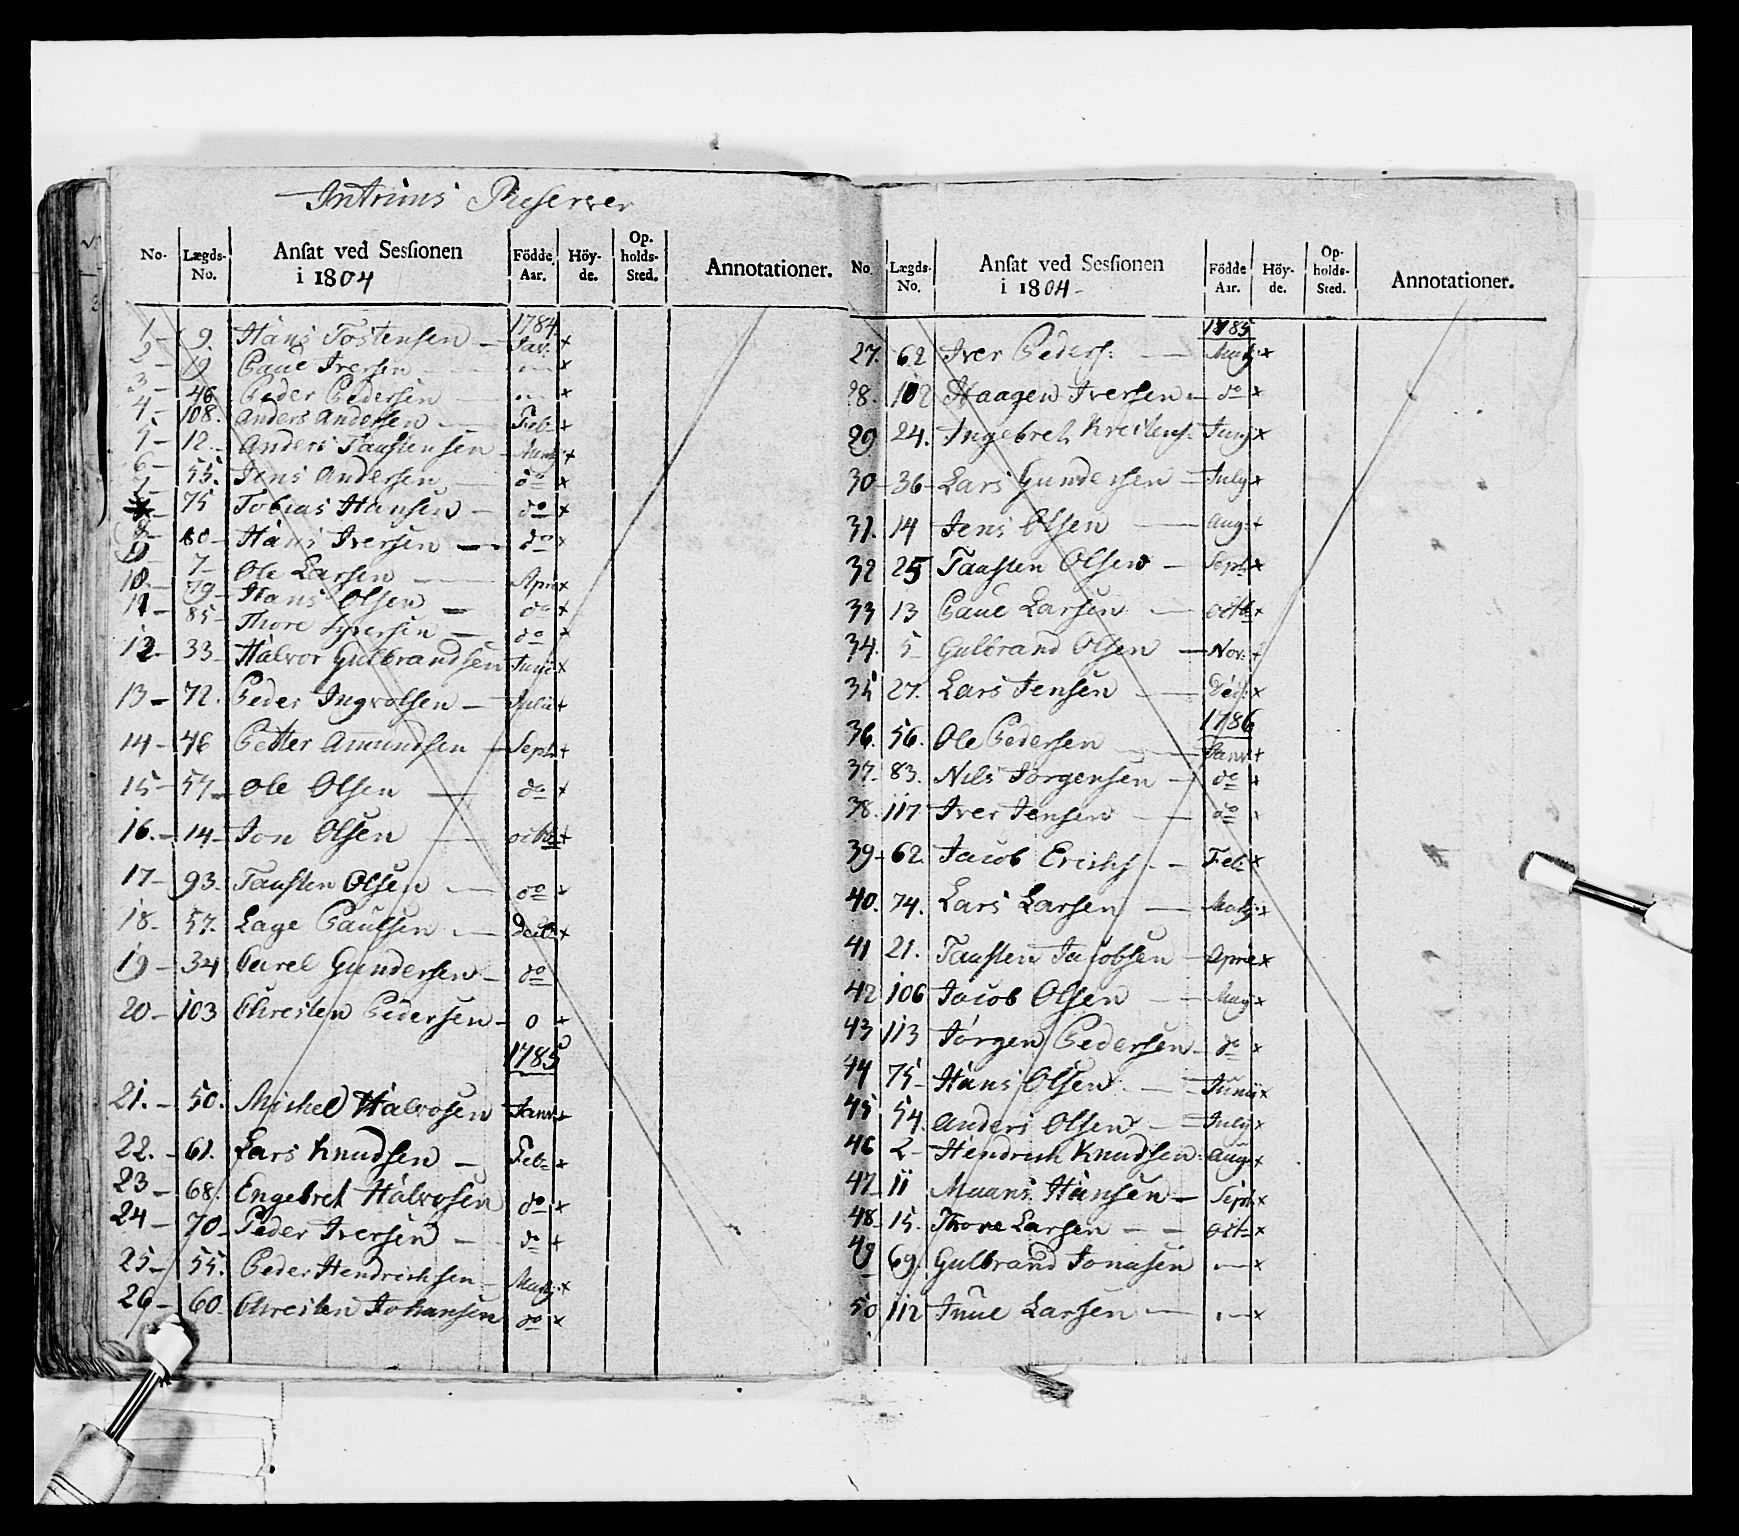 Intrims Reserver
No. Lægds-No. Ansat ved Sessionen i 1804 Födde Aar. Höy-de. Op-holds-Sted. Annotationer.
1784
1 - 9. Hans Tostensen - Jav: x
2 - 19 Paul Iversen - x
3 - 46 Peder Pedersen - x
4 - 108. Anders Andersen Feb x
5 - 12. - Anders Taustensen - x
6 - 55. Jens Andersen - do x
7 75 Tobias Hansen - do x
8 - 80 - Hans Iversen - do x
9 7 - Ole Larsen -
10. - 79 - Hans Olsen - do x
11 - 85 - Thore Syversen - do x
12. 33 - Halvor Gulbrandsen Junii x
13 - 72. Peder Ingvolsen - Julii x
14 - 46 Petter Amundsen - Sept x
15 - 57 - Ole Olsen - do x
16. - 14 - Jon Olsen octbr x
17 - 93 - Tausten Olsen - do x
18. 57. Lage Paulsen - Decb x
19 - 34 Carel Gundersen - do
20 - 103 Christen Pedersen - 0 x
1785
21. - 50. Michel Halvosen Janv x
22. - 61. Lars Knudsen - Feb x
23 - 68. Engebret Halvosen do x
24 - 70 - Peder Iversen - do x
25 - 55. Peder Hendrichsen - Martj: x
26 - 60. Christen Johansen do x
No. Lægds-No. Ansat ved Sessionen i 1804 - Födde Aar. Höy-de. Op-holds-Sted. Annotationer.
1785
27. 62 Iver Peders: - Martj x
28. 102 Haagen Iversen - do x
29 24. Ingebret Junj x
30 - 36 - Lars Gundersen - July x
31. 14 Jens Olsen - Aug: x
32 25 Tausten Olsen - Sept x
33 13 Paul Larsen - octb x
34. 5 Gulbrand Olsen - Nov: x
35 27. Lars Jensen - Dec: x
1786
36. 56. Ole Pedersen - Janv x
37 - 83. Nils Jörgensen - do x
38. 117 Iver Jensen - do x
39 - 62. Jacob Erichs - - Feb x
40. 74. Lars Larsen - Martj: x
41 21. Tausten Jacobsen - Apriel x
42 106 Jacob Olsen - - May x
43 113 Jörgen Pedersen - do x
44 75 - Hans Olsen - Junii x
45 54. Anders Olsen - July x
46 2 - Hendrich Knudsen - Aug x
47 11 Maans Hansen - Sept x
48 - 15. Thore Larsen - - oct x
49 69. Gulbrand Jonasen - x
50 112 Juul Larsen - - x